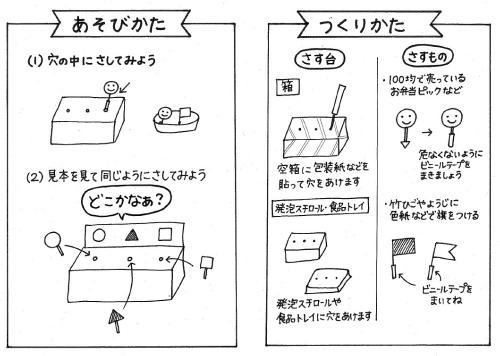 あそびかた
(1) 穴の中にさしてみよう
(2) 見本を見て同じようにさしてみよう
どこかなぁ？
つくりかた
さす台
箱
空箱に包装紙などを
貼って穴をあけます
発泡スチロール・食品トレイ
発泡スチロールや
食品トレイに穴をあけます
さすもの
・100均で売っている
お弁当ピックなど
危なくないように
ビニールテープを
まきましょう
・竹ひごやようじに
色紙などで旗をつける
ビニールテープを
まいてね